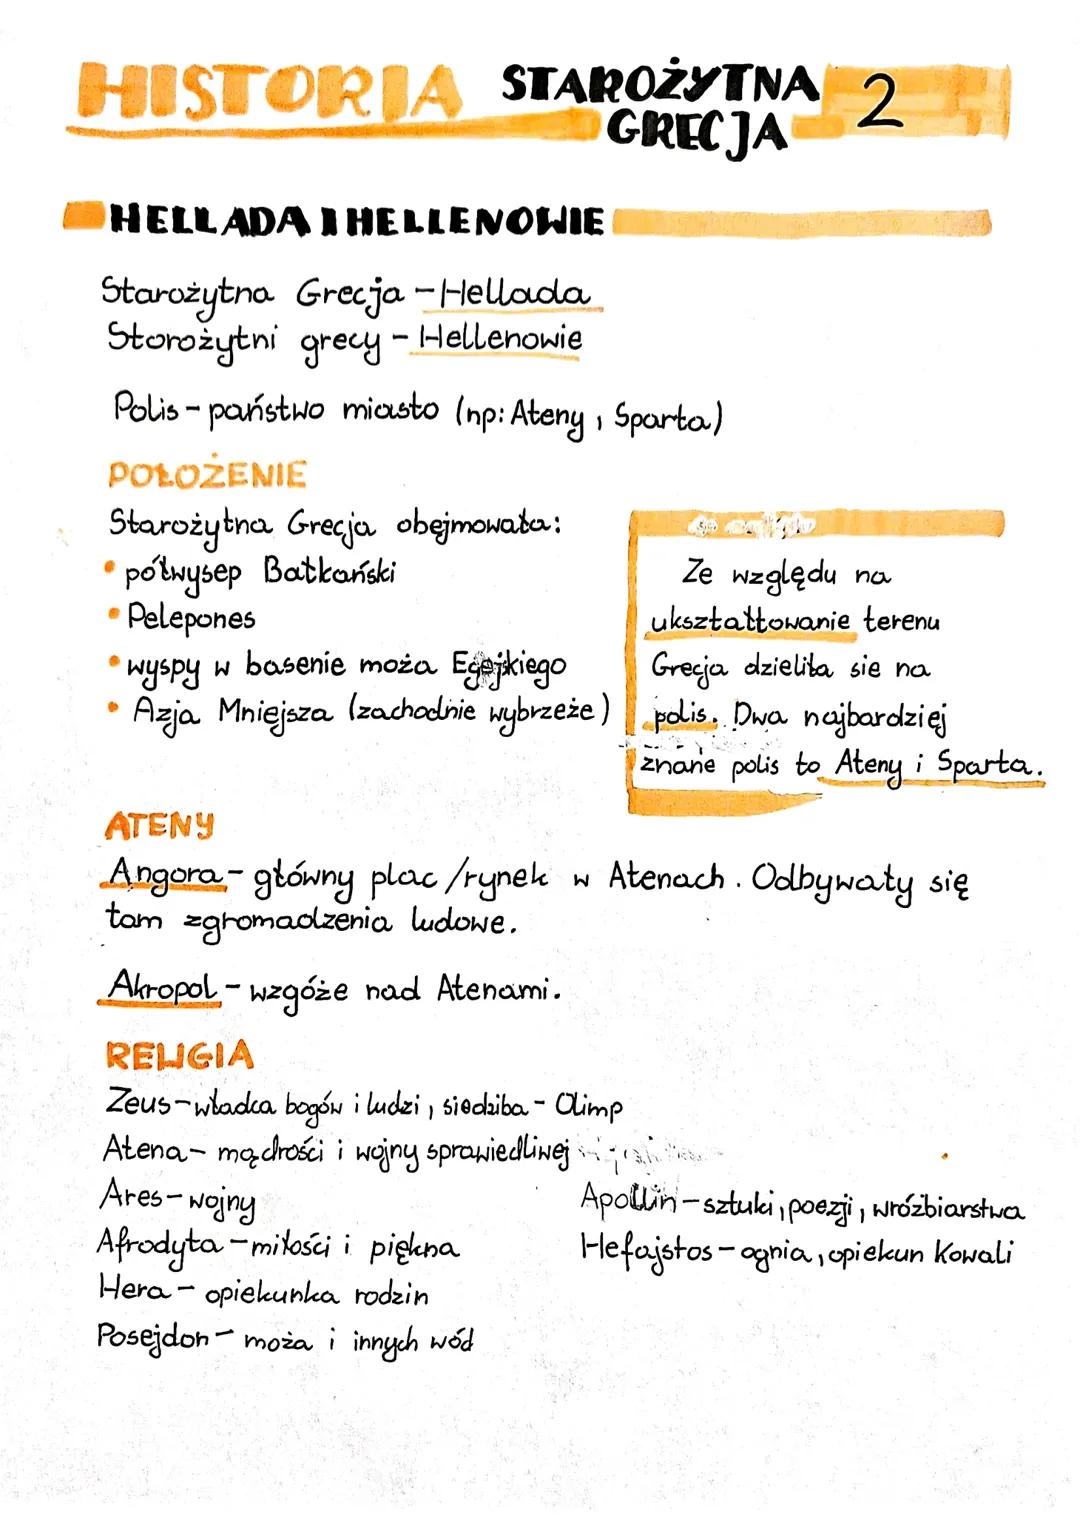 HISTORIA STAROŻYTNA GRECJA 2
HELLADA I HELLENOWIE
Starożytna Grecja - Hellada
Storożytni grecy - Hellenowie
Polis - państwo miasto (np: Ateny, Sparta)
POŁOŻENIE
Starożytna Grecja obejmowała:
• półwysep Bałkański
• Pelepones
• wyspy w basenie moża Egejkiego
• Azja Mniejsza (zachodnie wybrzeże)
Ze względu na
ukształtowanie terenu
Grecja dzieliła sie na
polis. Dwa najbardziej
znane polis to Ateny i Sparta.
ATENY
Angora - główny plac/rynek w Atenach. Odbywały się
tam zgromadzenia ludowe.
Akropol - wzgóże nad Atenami.
RELIGIA
Zeus - władca bogów i ludzi, siedziba - Olimp
Atena - mądrości i wojny sprawiedliwej
Ares - wojny
Afrodyta - miłości i piękna
Hera - opiekunka rodzin
Posejdon - moża i innych wód
Apollin - sztuki, poezji, wróżbiarstwa
Hefajstos - ognia, opiekun kowali